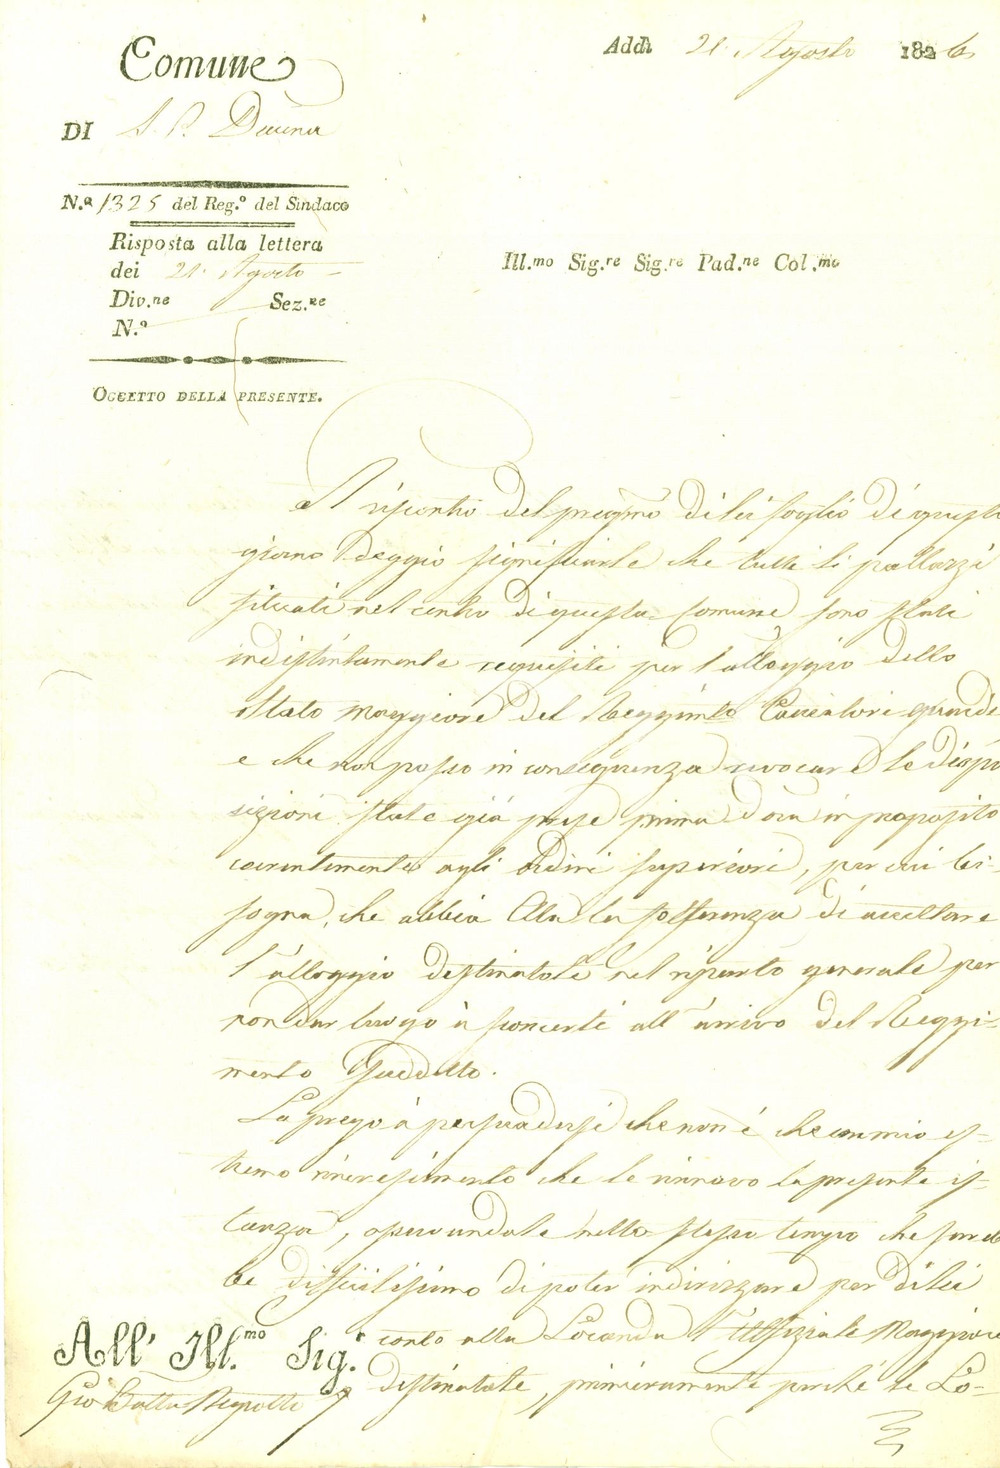 Comune
Addì 21. Agosto 1826
DI S. P. Darena
N.º 1325 del Reg.º del Sindaco
Risposta alla lettera
dei 21. Agosto
Div.ne Sez.ne
N.º
Ill.mo Sig.re Sig.re Pad.ne Col.mo
OGGETTO DELLA PRESENTE.
A riscontro del pregmo di lei foglio di questo
giorno deggio significarle che tutti li pallazzi
situati nel centro di questa Comune sono stati
indistintamente requisiti per l'alloggio dello
Stato Maggiore del Reggimto Cacciatori guardie
e che non posso in conseguenza rivocare le dispo
sizioni state già prese prima d'ora in proposito
coerentemente agli ordini superiori, per cui bi-
sogna, che abbia Ella la sofferenza di accettare
l'alloggio destinatole nel riparto generale per
non dar luogo à sconcerti all'arrivo del Reggi-
mento suddetto.
La prego à persuadersi che non é che con mio es-
tremo rincrescimento che le rinnovo la presente is-
tanza, osservandole nello stesso tempo che sareb
be difficilissimo di poter indirizzare per di lei
conto alla Locanda l'Uffiziale Maggiore
destinatole, primieramente perché le Lo-
All' Ill.mo Sig.r
Gio Batta